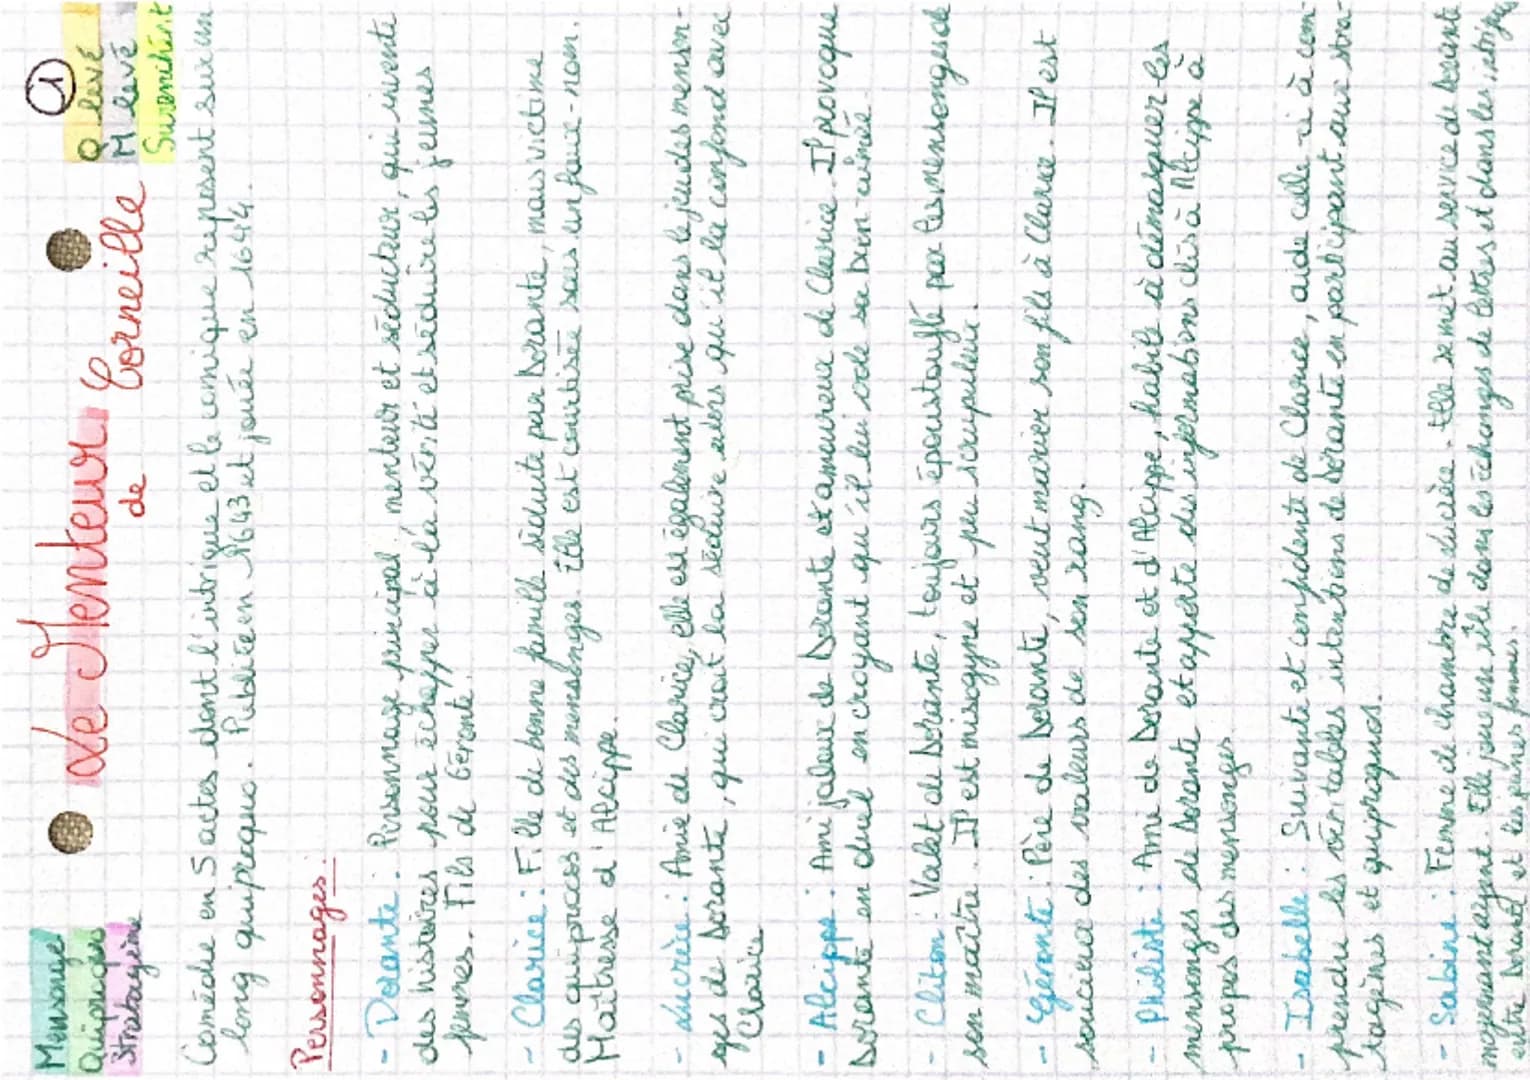 Mensonge
Quiproquos
Stratagème
Le Menteur
de Corneille
1
Q levé
M levé
Surenchérit
Comédie en 5 actes dont l'intrigue et le comique reposent sur un
long quiproquo. Publiée en 1643 et jouée en 1644.
Personnages :
- Dorante : Personnage principal, menteur et séducteur, qui invente
des histoires pour échapper à la vérité et séduire les jeunes
femmes. Fils de Géronte.
- Clarice : Fille de bonne famille séduite par Dorante, mais victime
des quiprocos et des mensonges. Elle est courtisée sous un faux-nom.
Maîtresse d'Alcippe.
- Lucrèce : Amie de Clarice, elle est également prise dans le jeu des menson-
ges de Dorante, qui croit la séduire alors qu'il la confond avec
Clarice
- Alcippe : Ami jaloux de Dorante et amoureux de Clarice. Il provoque
Dorante en duel en croyant qu'il lui vole sa bien-aimée.
- Cliton : Valet de Dorante, toujours époustouflé par les mensonges de
son maître. Il est misogyne et peu scrupuleux.
- Géronte : Père de Dorante, veut marier son fils à Clarice. Il est
soucieux des valeurs de son rang.
- Philiste : Ami de Dorante et d'Alcippe, habile à démasquer les
mensonges de Dorante et apporte des informations clés à Alcippe à
propos des mensonges.
- Isabelle : Suivante et confidente de Clarice, aide celle-ci à com-
prendre les véritables intentions de Dorante en participant aux stra-
tagèmes et quiproquos.
- Sabine : Femme de chambre de Lucrèce. Elle se met au service de Dorante
moyennant argent. Elle joue un rôle dans les échanges de lettres et dans les intrigues
entre Dorante et les jeunes femmes.